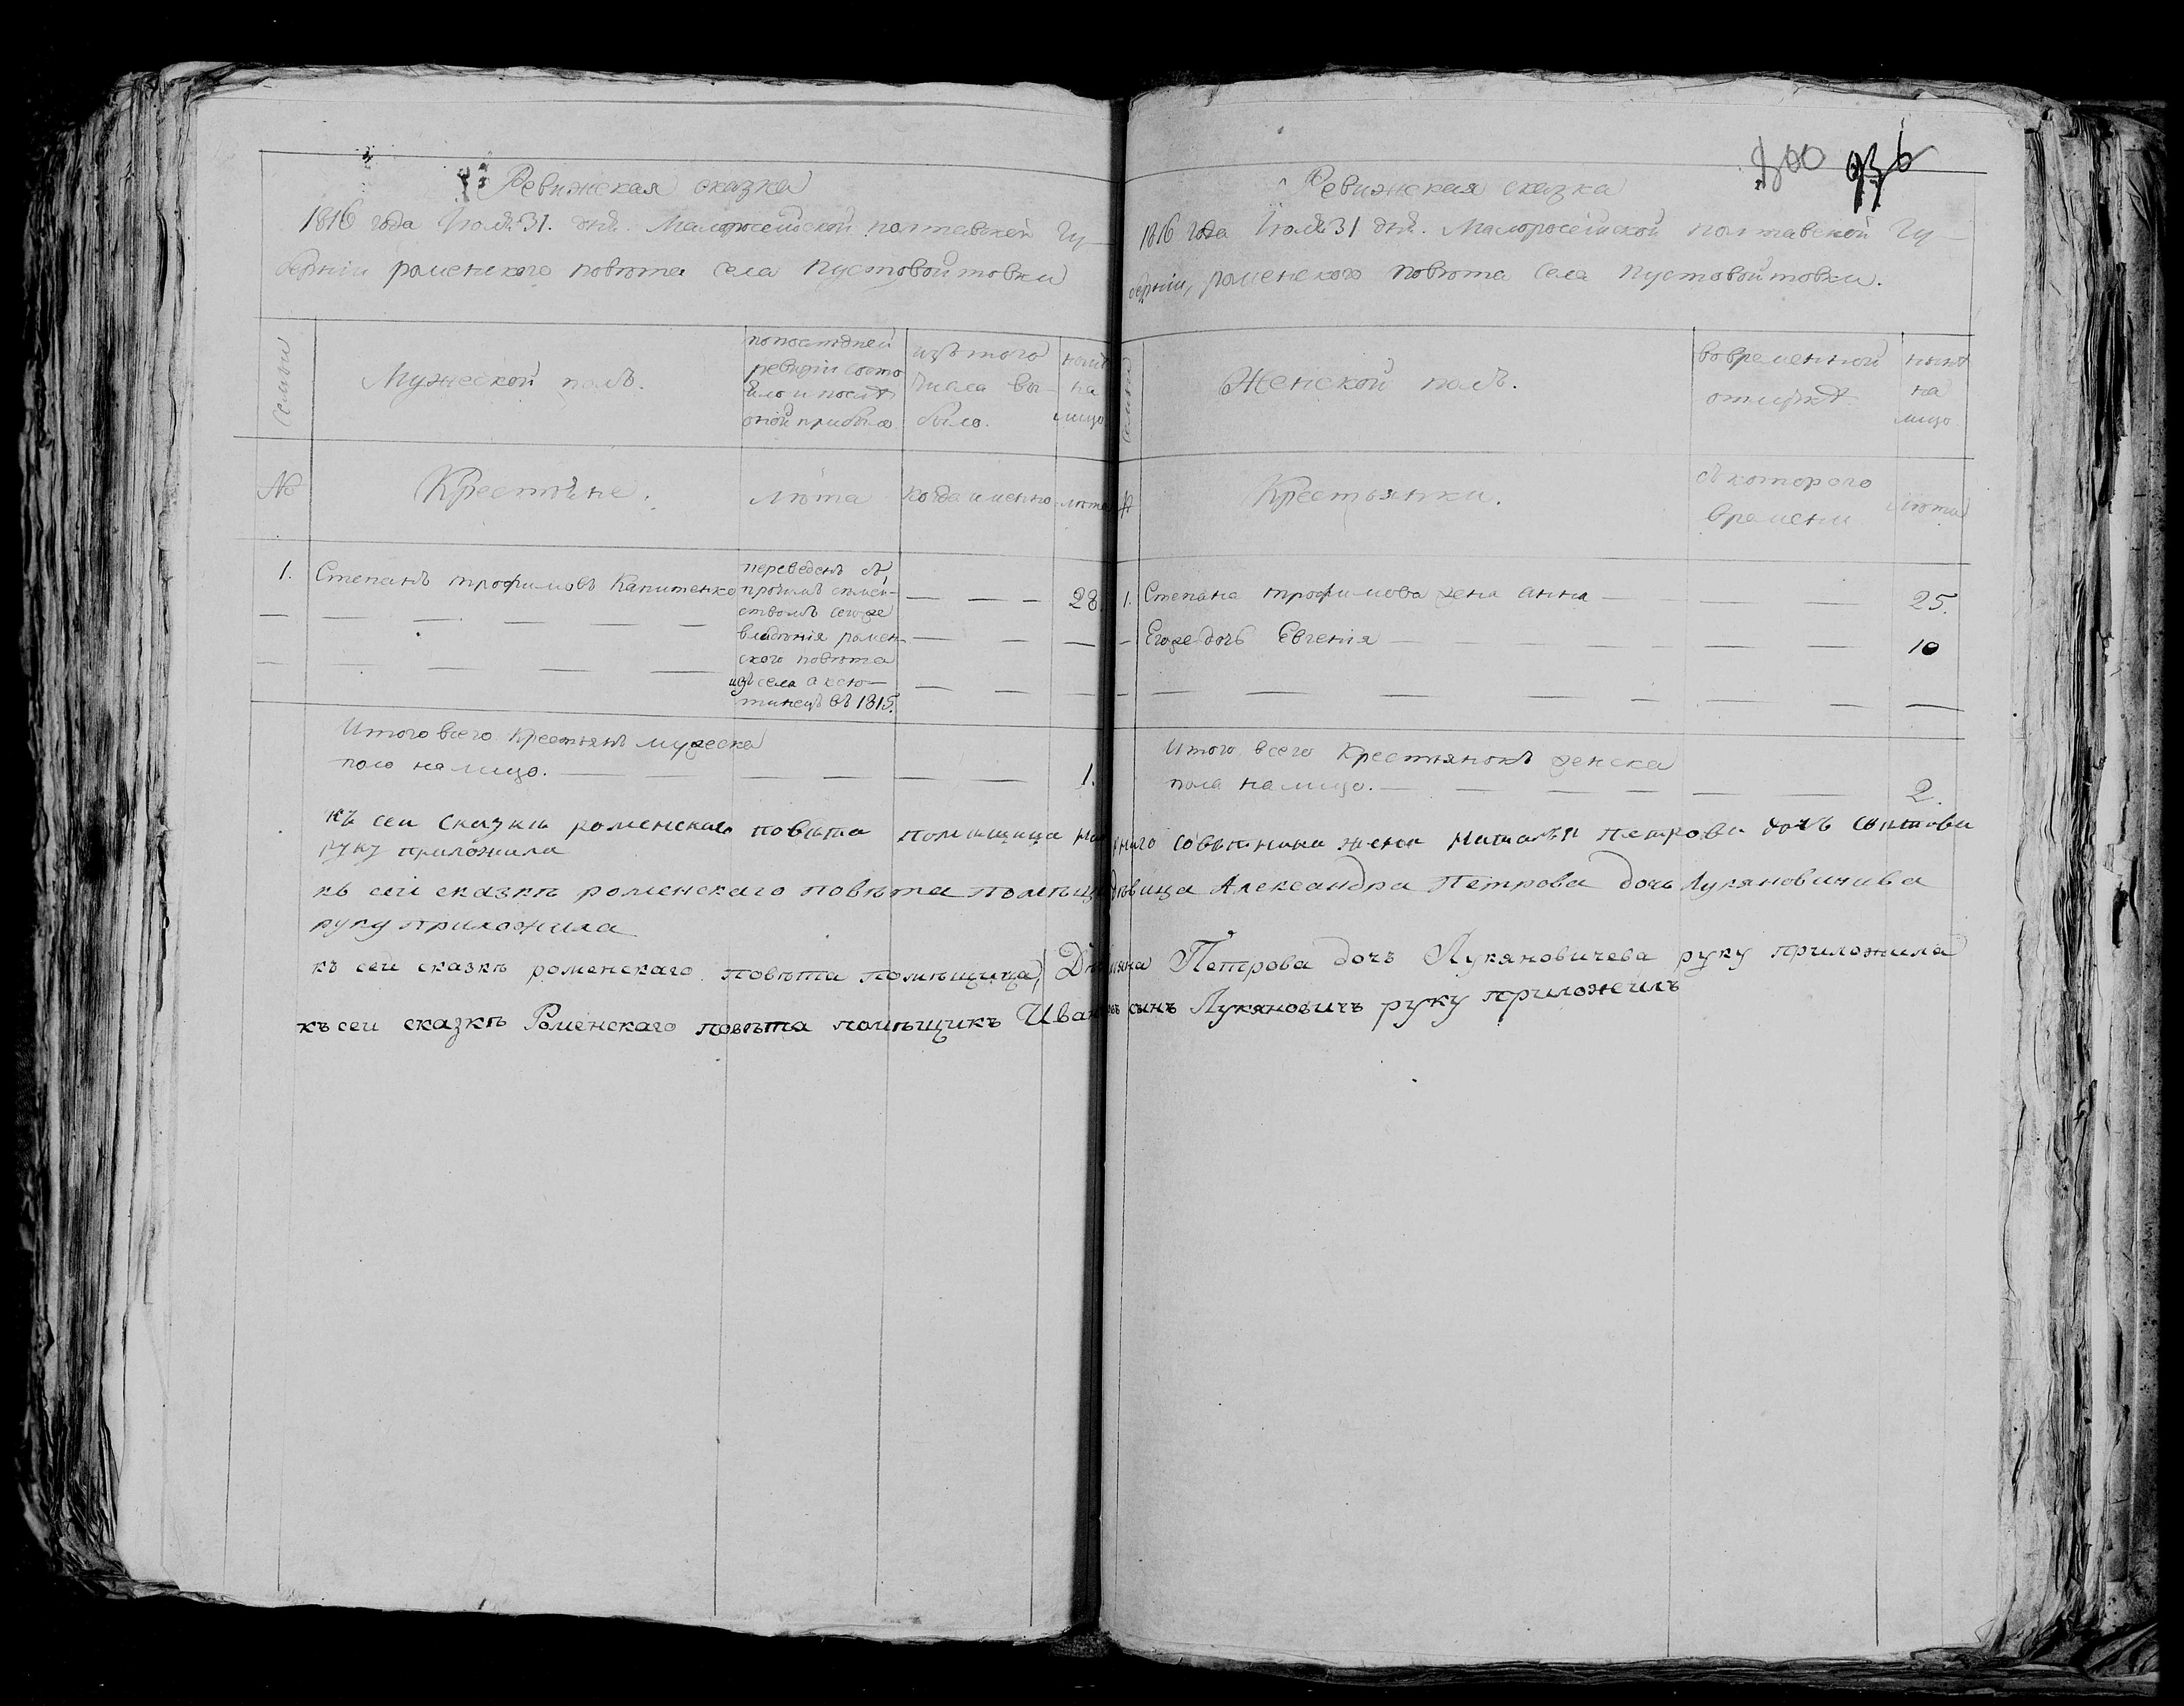 Ревижская сказка
1816 года Іюля 31. дня. Малоросейской полтавской Гу-
берніи роменского повѣта села Пустовойтовки
семьи
Мужеской полъ.
по последней
ревизіи состо
яло и послѣ
оной прибыло
изъ того
числа вы-
было.
нынѣ
на
лицо
№
Крестьяне.
лѣта
когда именно
лѣта
1. Степанъ трофимовъ Капитенко
переведенъ съ
ствомъ сего же
владенія ромен-
ского повѣта
изъ села аксю-
тинецъ въ 1815.
28
Итого всего крестьянъ мужеска
поло на лицо. 1.
800 936
Ревижская сказка
1816 года Іюля 31 дня. Малоросейской полтавской Гу-
берніи, роменского повѣта села Пустовойтовки.
семьи
Женской полъ.
во временной
отлучкѣ
нынѣ
на
лицо
№
Крестьянки.
съ которого
времени
лѣта
1. Степана трофимова жена анна 25.
Его же дочь Евгенія 10
Итого всего крестьянокъ женска
пола на лицо. 2.
къ сеи сказки роменскаго повѣта помещица совѣтника жена Наталья Петрова дочъ
руку приложила
къ сей сказкѣ роменскаго повѣта девица Александра Петрова дочь Лукяновичива
руку приложила
къ сей сказкѣ роменскаго повѣта помѣщица Петрова дочъ Лукяновичева руку приложила
къ сеи сказкѣ Роменскаго повѣта помѣщикъ сынъ Лукяновичъ руку приложилъ